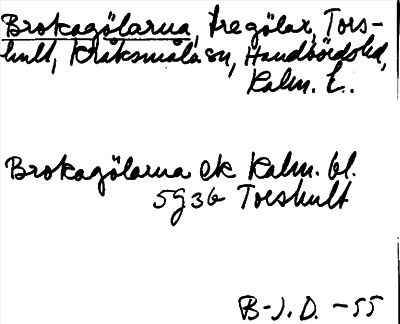 Brokagölarna, tre gölar, Tors-
hult, Kråksmåla sn, Handbörds hd,
Kalm. l.
Brokagölarna ek Kalm. bl.
5g36 Torshult
B-J. D. -55